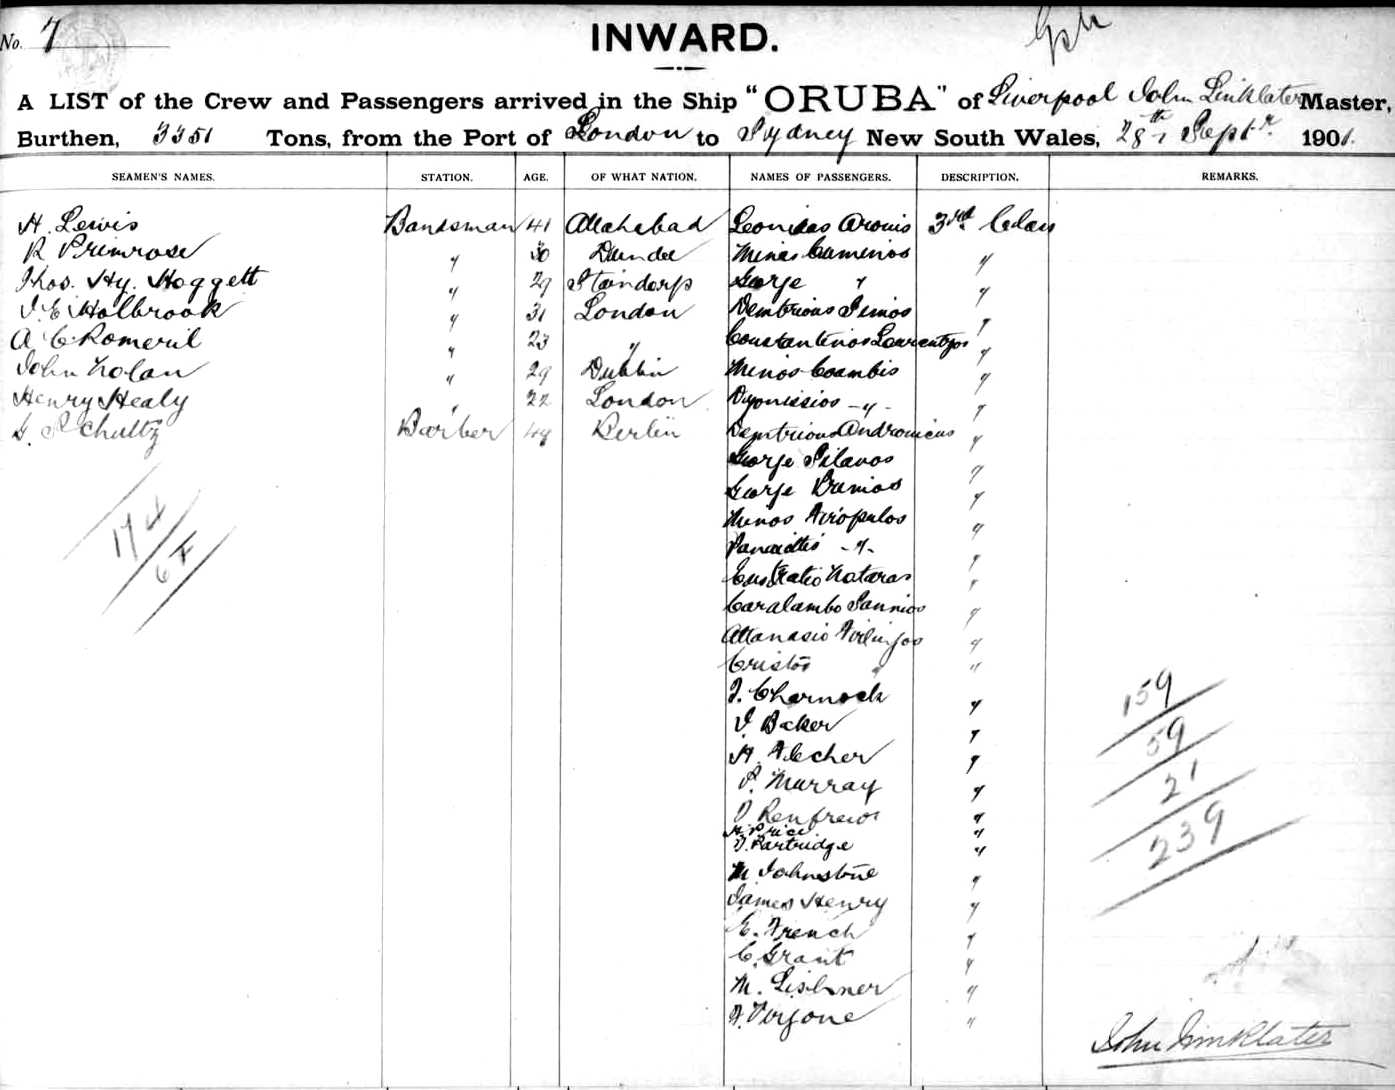 No. 7
INWARD.
A LIST of the Crew and Passengers arrived in the Ship "ORUBA" of Liverpool John Linklater Master,
Burthen, 3351 Tons, from the Port of London to Sydney New South Wales, 28th Septr. 1901.
SEAMEN'S NAMES. STATION. AGE. OF WHAT NATION. NAMES OF PASSENGERS. DESCRIPTION. REMARKS.
H. Lewis Bandsman 41 Allahabad Leonidas Aronis 3rd Class
R Primrose " 30 Dundee Minas Cumenios "
Thos. Hy. Hoggett " 29 George " "
J. E. Holbrook " 31 London Demtrious Simos "
A C Romeril " 23 " Constantinos Laurentzos "
John Nolan " 29 Dublin Minos Coambis "
Henry Healy " 22 London Dyonissios - " - "
G. Schultz Barber 49 Berlin Demtrious Andronicus "
George Pilavos "
George "
Minos "
- " - "
Eustratio Nataras "
Caralambo Pannios "
Attanasio "
Cristos " "
J. Charnock "
J. Baker "
H. Flecher "
P. Murray "
D Renfrew "
H Price "
J. Partridge "
M Johnstone "
James Henry "
E. French "
C. Grant "
M. Lishner "
F. "
174
67
159
59
21
239
John Linklater